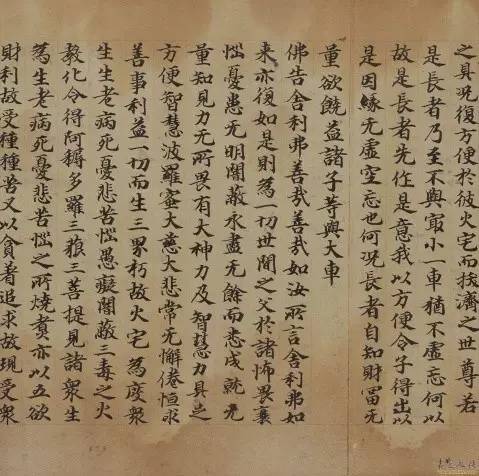 之具況復方便於彼火宅而拔濟之世尊若
是長者乃至不與冣小一車猶不虛妄何以
故是長者先作是意我以方便令子得出以
是因緣无虛妄也何況長者自知財富无
量欲饒益諸子等與大車
佛告舍利弗善哉善哉如汝所言舍利弗如
來亦復如是則為一切世間之父於諸怖畏衰
惱憂患无明闇蔽永盡无餘而悉成就无
量知見力无所畏有大神力及智慧力具足
方便智慧波羅蜜大慈大悲常无懈倦恒求
善事利益一切而生三界朽故火宅為度眾
生生老病死憂悲苦惱愚癡闇蔽三毒之火
教化令得阿耨多羅三藐三菩提見諸眾生
為生老病死憂悲苦惱之所燒煮亦以五欲
財利故受種種苦又以貪著追求故現受眾